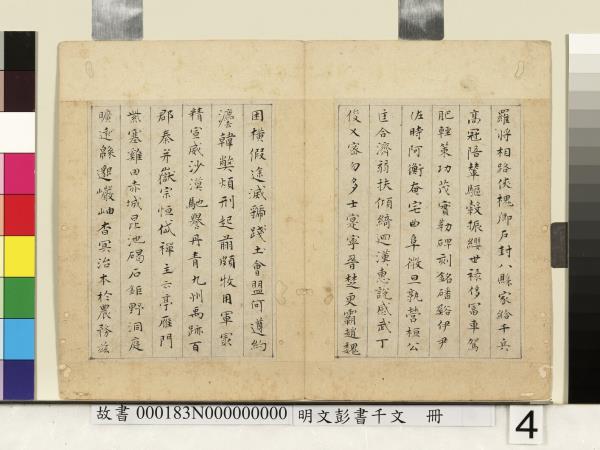 羅將相路俠槐卿戶封八縣家給千兵
高冠陪輦驅轂振纓世祿侈富車駕
肥輕策功茂實勒碑刻銘磻谿伊尹
佐時阿衡奄宅曲阜微旦孰營桓公
匡合濟弱扶傾綺迴漢惠說感武丁
俊乂密勿多士寔寧晉楚更霸趙魏
困橫假途滅虢踐土會盟何遵約
灋韓弊煩刑起翦頗牧用軍冣
精宣威沙漠馳譽丹青九州禹跡百
郡秦并嶽宗恒岱禪主云亭雁門
紫塞雞田赤城昆池碣石鉅野洞庭
曠遠緜邈巖岫杳冥治本於農務茲
故書 000183N000000000 明文彭書千文 冊
4